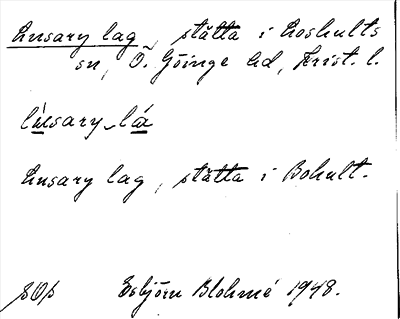 Lusary lag, stätta i Loshults
sn, Ö. Göinge hd, Krist. l.
lusary_lá
Lusary lag, stätta i Bohult.
SOp Esbjörn Blohmé 1948.